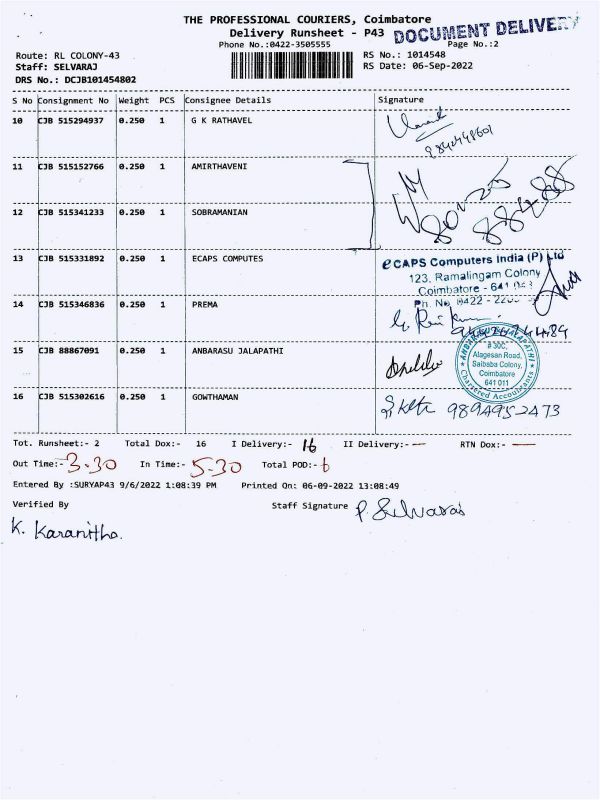 THE PROFESSIONAL COURIERS, Coimbatore
Delivery Runsheet - P43
DOCUMENT DELIVERY
Phone No.:0422-3505555
Page No.:2
Route: RL COLONY-43
RS No.: 1014548
Staff: SELVARAJ
RS Date: 06-Sep-2022
DRS No.: DCJB101454802
S No Consignment No Weight PCS Consignee Details Signature
10 CJB 515294937 0.250 1 G K RATHAVEL
11 CJB 515152766 0.250 1 AMIRTHAVENI
12 CJB 515341233 0.250 1 SOBRAMANIAN
13 CJB 515331892 0.250 1 ECAPS COMPUTES
eCAPS Computers India (P) Ltd
123, Ramalingam Colony
Coimbatore - 641 043
Ph. No. 0422 -
14 CJB 515346836 0.250 1 PREMA
15 CJB 88867091 0.250 1 ANBARASU JALAPATHI
ANBARASU & JALAPATHI
# 30C,
Alagesan Road,
Saibaba Colony,
Coimbatore
641 011
Chartered Accountants
16 CJB 515302616 0.250 1 GOWTHAMAN 9894952473
Tot. Runsheet:- 2 Total Dox:- 16 I Delivery:- 16 II Delivery:- — RTN Dox:- —
Out Time:- 3.30 In Time:- 5.30 Total POD:- 6
Entered By :SURYAP43 9/6/2022 1:08:39 PM Printed On: 06-09-2022 13:08:49
Verified By Staff Signature P. Selvaraj
K. Karanitha.